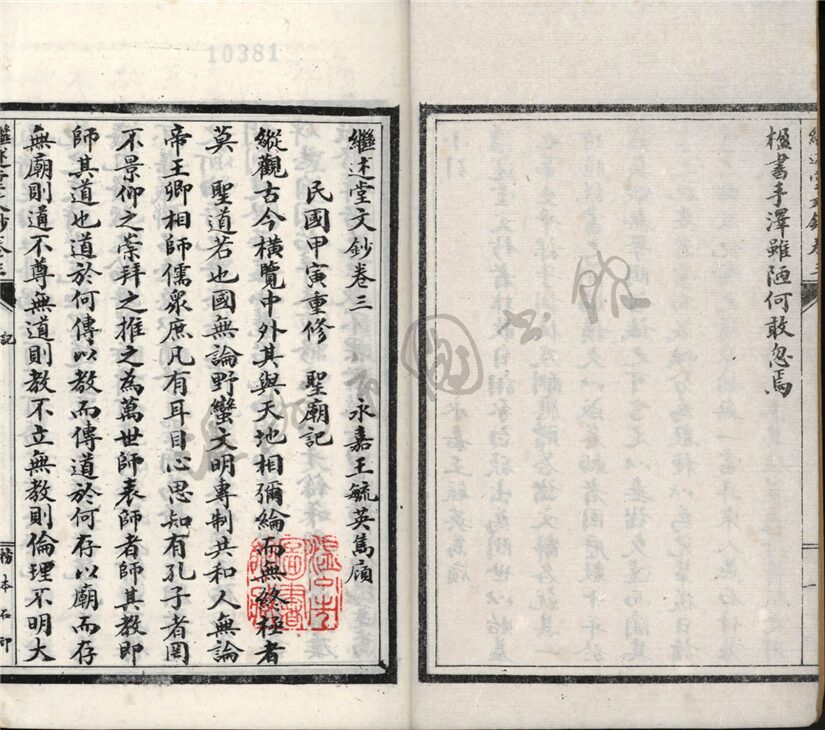 楹書手澤雖陋何敢忽焉
10381
繼述堂文鈔卷三　永嘉王毓英雋廎
民國甲寅重修　聖廟記
縱觀古今橫覽中外其與天地相彌綸而無終極者
莫　聖道若也國無論野蠻文明專制共和人無論
帝王卿相師儒衆庶凡有耳目心思知有孔子者罔
不景仰之崇拜之推之為萬世師表師者師其教即
師其道也道於何傳以教而傳道於何存以廟而存
無廟則道不尊無道則教不立無教則倫理不明大
繼述堂文鈔卷三
記